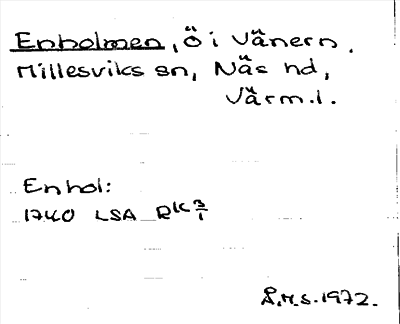 Enholmen, ö i Vänern.
Millesviks sn, Näs hd,
Värm.l.
Enhol:
1740 LSA Rk 3/1
Å.M.S. 1972.